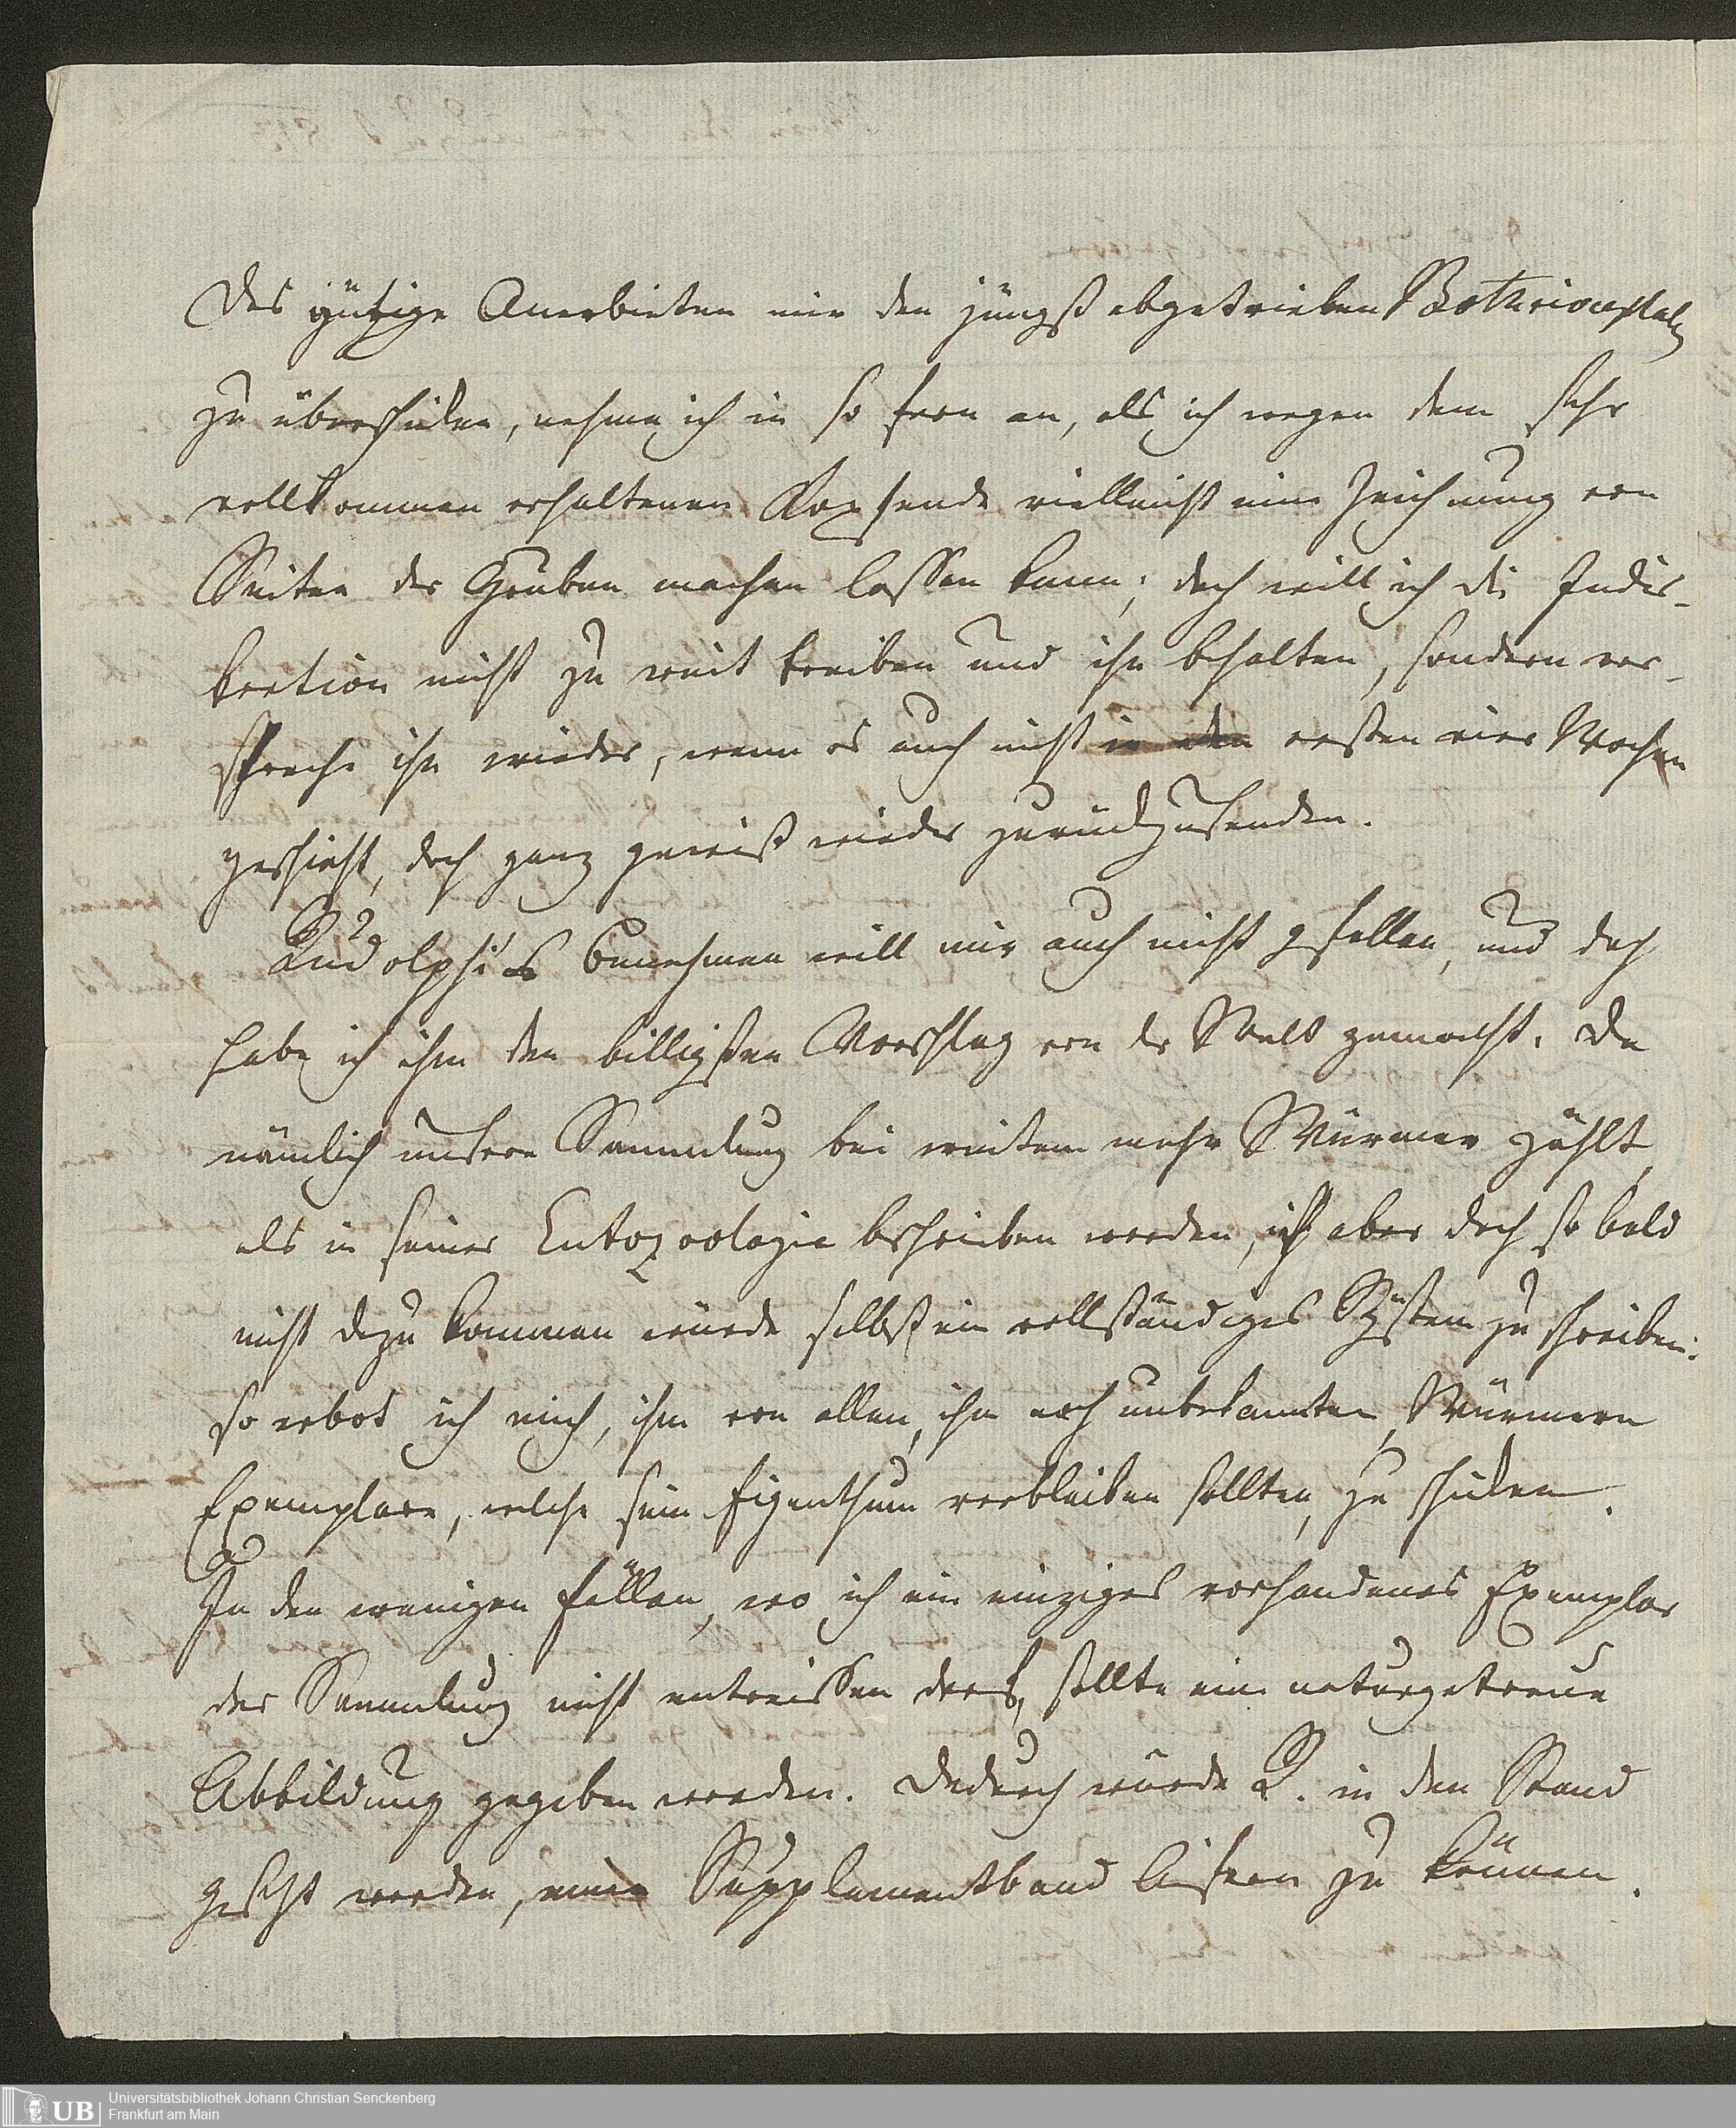 Das gütige Anerbieten mir den jüngst abgetrieben Bothriocephalus
zu überschicken, nehme ich in so fern an, als ich wegen dem sehr
vollkommen erhaltenen Kopfende vielleicht eine Zeichnung von
Seiten der Gruben machen lassen kann; doch will ich die Indis-
kretion nicht zu weit treiben und ihn behalten, sondern ver-
spreche ihn wieder, wenn es auch nicht in den ersten vier Wochen
geschieht, doch ganz gewiß wieder zurückzusenden.
Rudolphi's Benehmen will mir auch nicht gefallen, und doch
habe ich ihm den billigsten Vorschlag von der Welt gemacht. Da
nämlich unsere Sammlung bei weitem mehr Würmer zählt,
als in seiner Entozoologie beschrieben werden, ich aber doch so bald
nicht dazu kommen würde selbst ein vollständiges System zu schreiben:
so erbot ich mich, ihm von allen, ihm noch unbekannten, Würmern
Exemplare, welche sein Eigenthum verbleiben sollten, zu schicken.
In den wenigen Fällen, wo ich ein einziges vorhandenes Exemplar
der Sammlung nicht entreissen darf, sollte eine naturgetreue
Abbildung gegeben werden. Dadurch würde R. in den Stand
gesetzt werden, einen Supplementband liefern zu können.
Universitätsbibliothek Johann Christian Senckenberg
Frankfurt am Main
UB